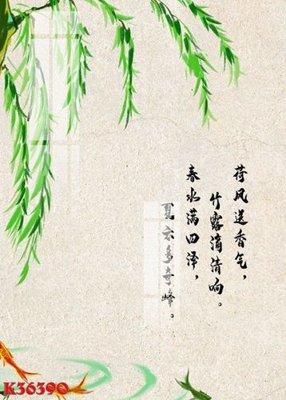 荷风送香气，
竹露滴清响。
春水满四泽，
夏云多奇峰。
K36390